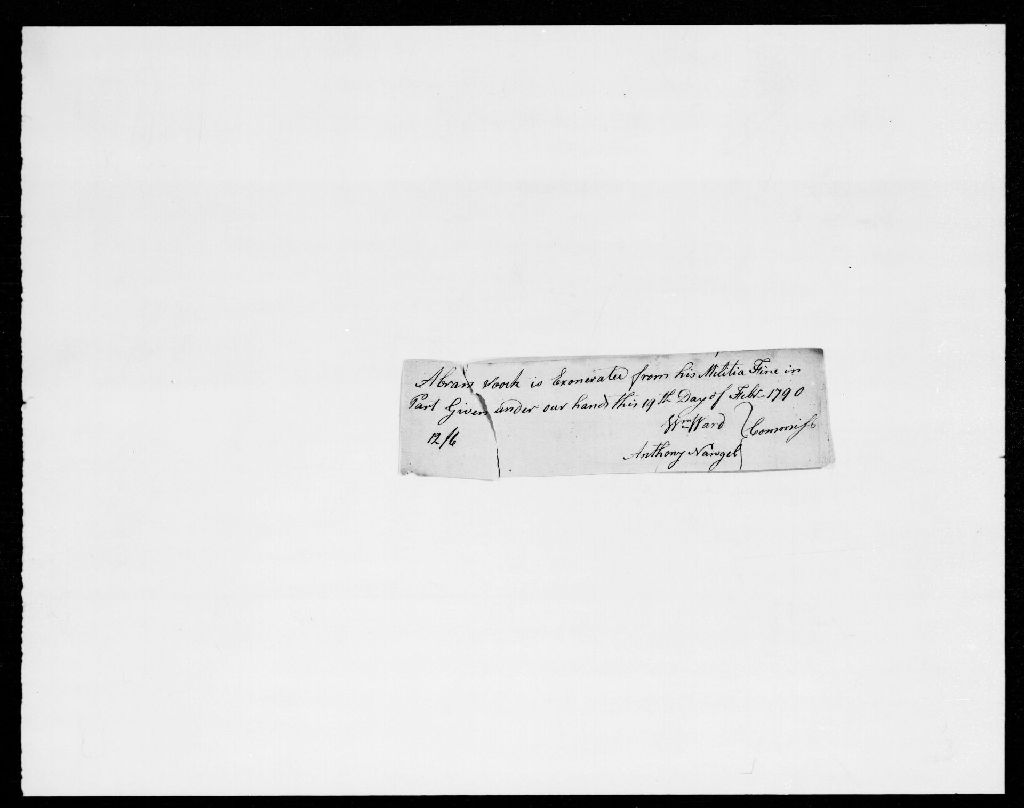 Abram is Exonerated from his Militia Fine in
Part Given under our hands this 19th Day of Febr 1790
12/6
Wm Ward
Anthony